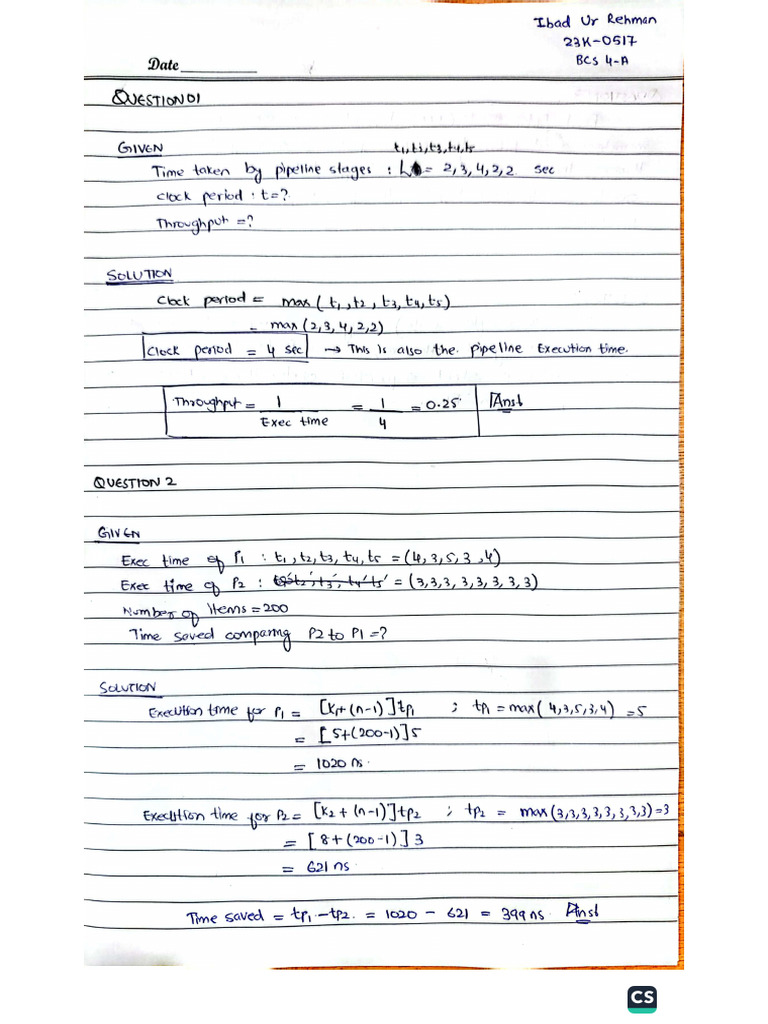 Ibad Ur Rehman
23K-0517
BCS 4-A
Date
QUESTION 01
GIVEN
t1, t2, t3, t4, t5
Time taken by pipeline stages : = 2, 3, 4, 2, 2 sec
Clock period : t=?
Throughput =?
SOLUTION
Clock period = max ( t1, t2, t3, t4, t5)
= max (2,3,4,2,2)
Clock period = 4 sec → This is also the pipeline Execution time.
Throughput = 1 / Exec time = 1 / 4 = 0.25 Ans!
QUESTION 2
GIVEN
Exec time of P1 : t1, t2, t3, t4, t5 = (4,3,5,3,4)
Exec time of P2 : = (3,3,3,3,3,3,3,3)
Number of items = 200
Time saved comparing P2 to P1 =?
SOLUTION
Execution time for P1 = [k1+(n-1)]tp1 ; tp1 = max( 4,3,5,3,4) = 5
= [5+(200-1)]5
= 1020 ns.
Execution time for P2 = [k2 + (n-1)]tp2 ; tp2 = max (3,3,3,3,3,3,3,3)=3
= [8+(200-1)]3
= 621 ns
Time saved = tp1 - tp2 = 1020 - 621 = 399 ns. Ans!
CS